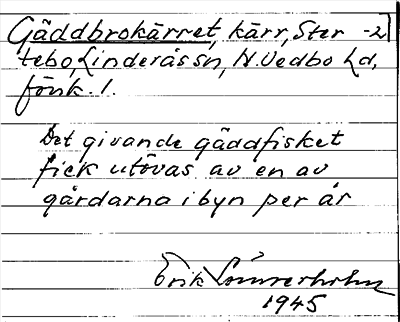 Gäddbrokärret, kärr, Ster -2
tebo, Linderås sn, N. Vedbo hd,
förtk. 1.
Det givande gäddfisket
fick utövas av en av
gårdarna i byn per år
Erik
1945